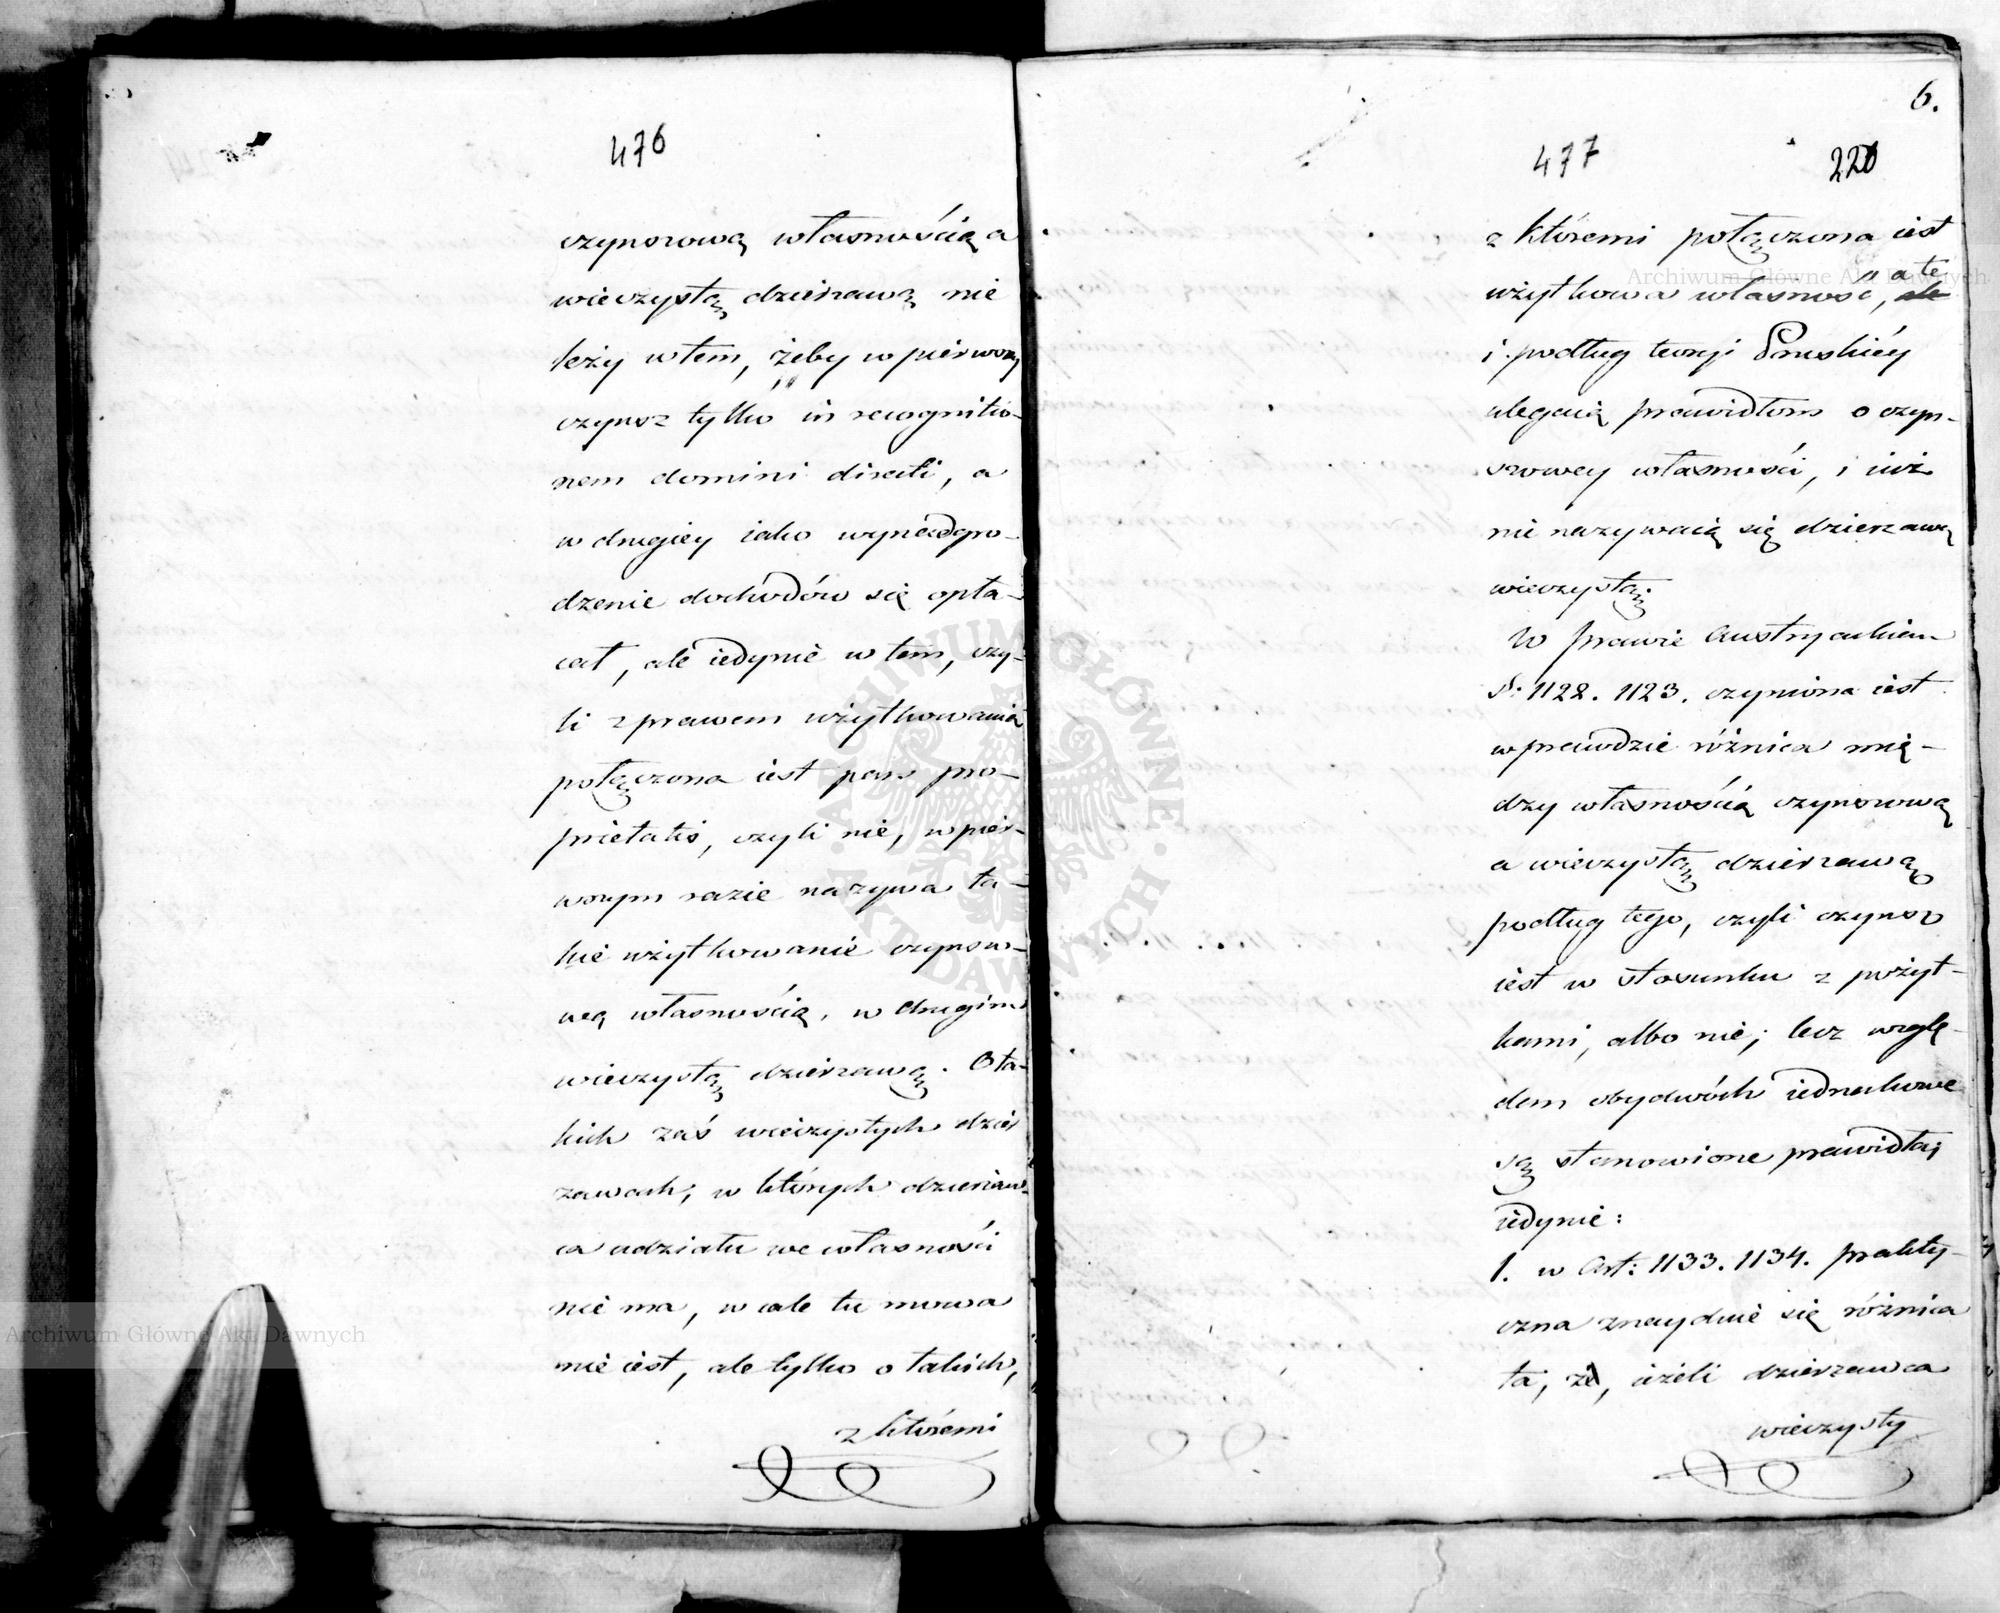 476
czynszową własnością a
wieczystą dzierzawą nie
leży w tem, żeby w pierwszey
czynsz tylko in recognitio-
nem domini directi, a
w drugiey iako wynadgro-
dzenie dochodów się opła-
cał, ale iedynie w tem, czy-
li z prawem użytkowania
połączona iest pars pro-
prietatis, czyli nie, w pier-
wszym razie nazywa ta-
kie użytkowanie czynszo-
wą własnością, w drugim
wieczystą dzierzawą. O ta-
kich zaś wieczystych dzier
zawach, w których dzierżaw-
ca udziału we własności
nie ma, wcale tu mowa
nie iest, ale tylko o takich,
z któremi
6.
477
220
z któremi połączona iest
użytkowa własność, ale a te
i podług teoryi Pruskiéy
ulegaią prawidłom o czyn-
szowey własności, i iuż
nie nazywaią się dzierzawą
wieczystą.
W prawie Austryackiem
§: 1122. 1123. czyniona iest
wprawdzie różnica mię-
dzy własnością czynszową
a wieczystą dzierzawą
podług tego, czyli czynsz
iest w stosunku z pożyt-
kami, albo nie; lecz wzglę-
dem obydwóch iednakowe
są stanowione prawidła;
iedynie:
1. w Art: 1133. 1134. prakty-
czna znayduie się różnica
ta, że, ieżeli dzierzawca
wieczysty
Archiwum Główne Akt Dawnych
Archiwum Główne Akt Dawnych
ARCHIWUM GŁÓWNE AKT DAWNYCH